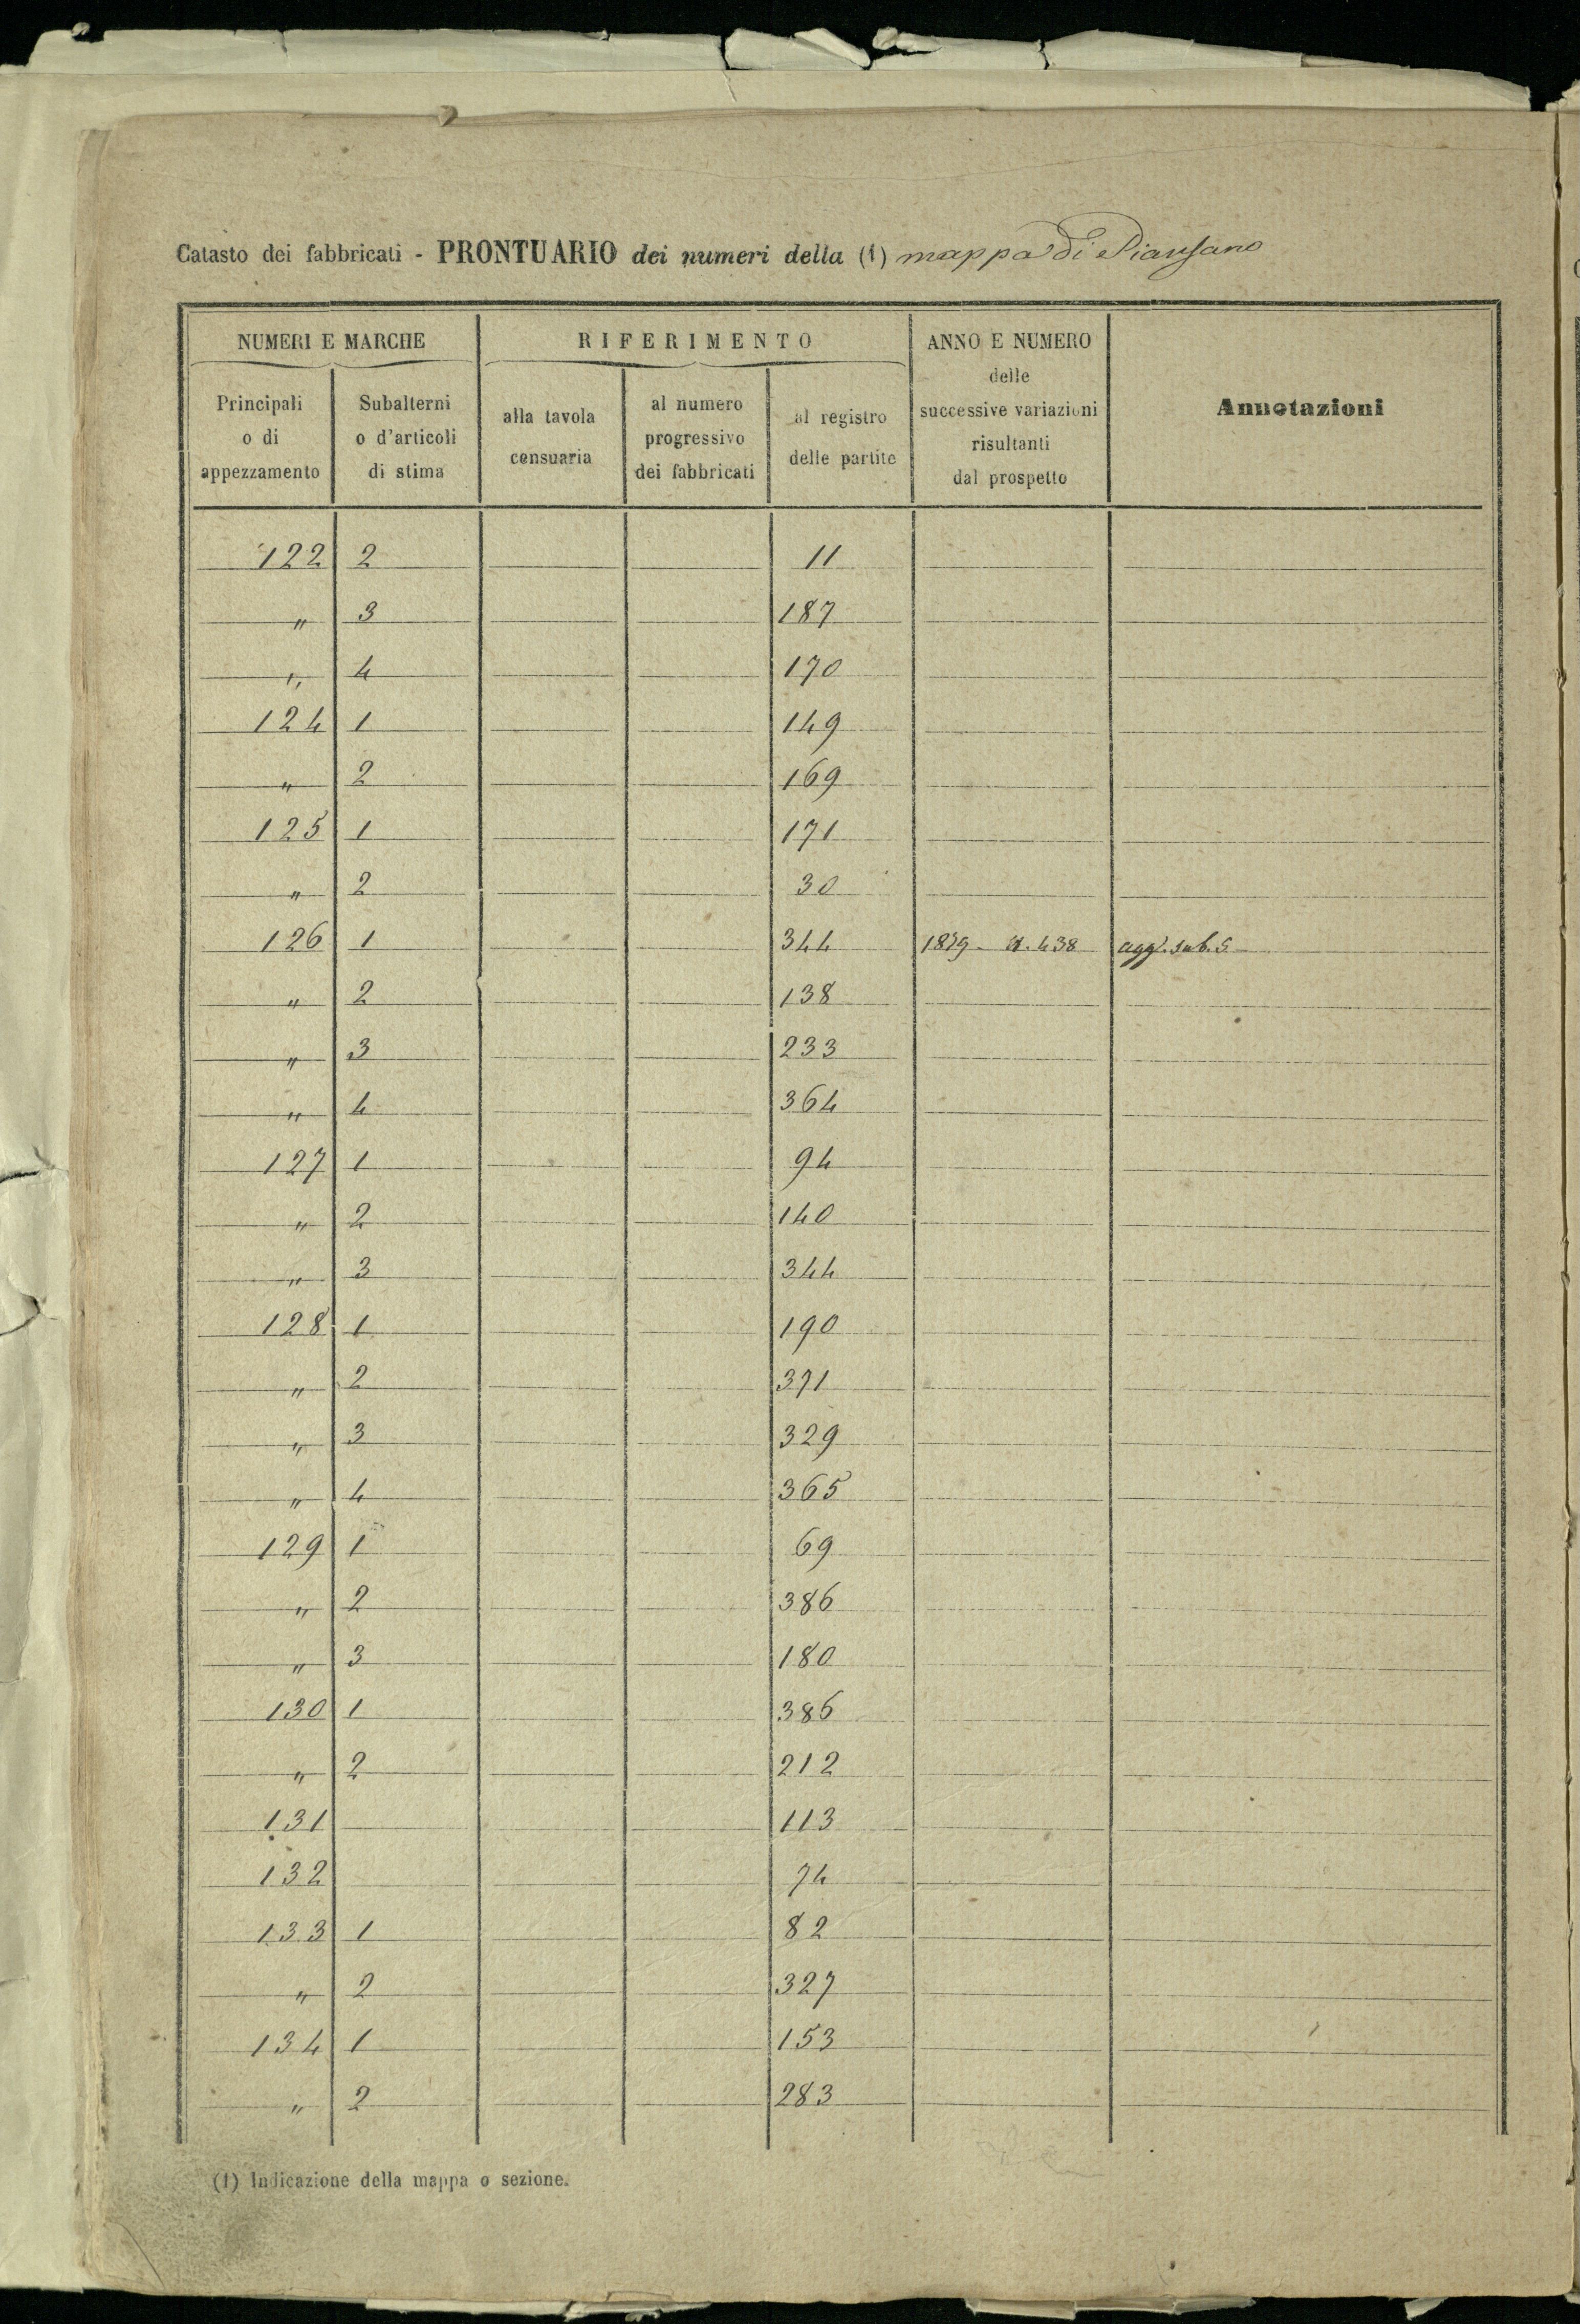 Catasto dei fabbricati - PRONTUARIO dei numeri della (1) mappa di Piansano
NUMERI E MARCHE
Principali o di appezzamento
Subalterni o d'articoli di stima
RIFERIMENTO
alla tavola censuaria
al numero progressivo dei fabbricati
al registro delle partite
ANNO E NUMERO delle successive variazioni risultanti dal prospetto
Annotazioni
122 2 11
" 3 187
" 4 170
124 1 149
" 2 169
125 1 171
" 2 30
126 1 344 1879 - 438 agg. sub. 5
" 2 138
" 3 233
" 4 364
127 1 94
" 2 140
" 3 344
128 1 190
" 2 371
" 3 329
" 4 365
129 1 69
" 2 386
" 3 180
130 1 386
" 2 212
131 113
132 74
133 1 82
" 2 327
134 1 153
" 2 283
(1) Indicazione della mappa o sezione.